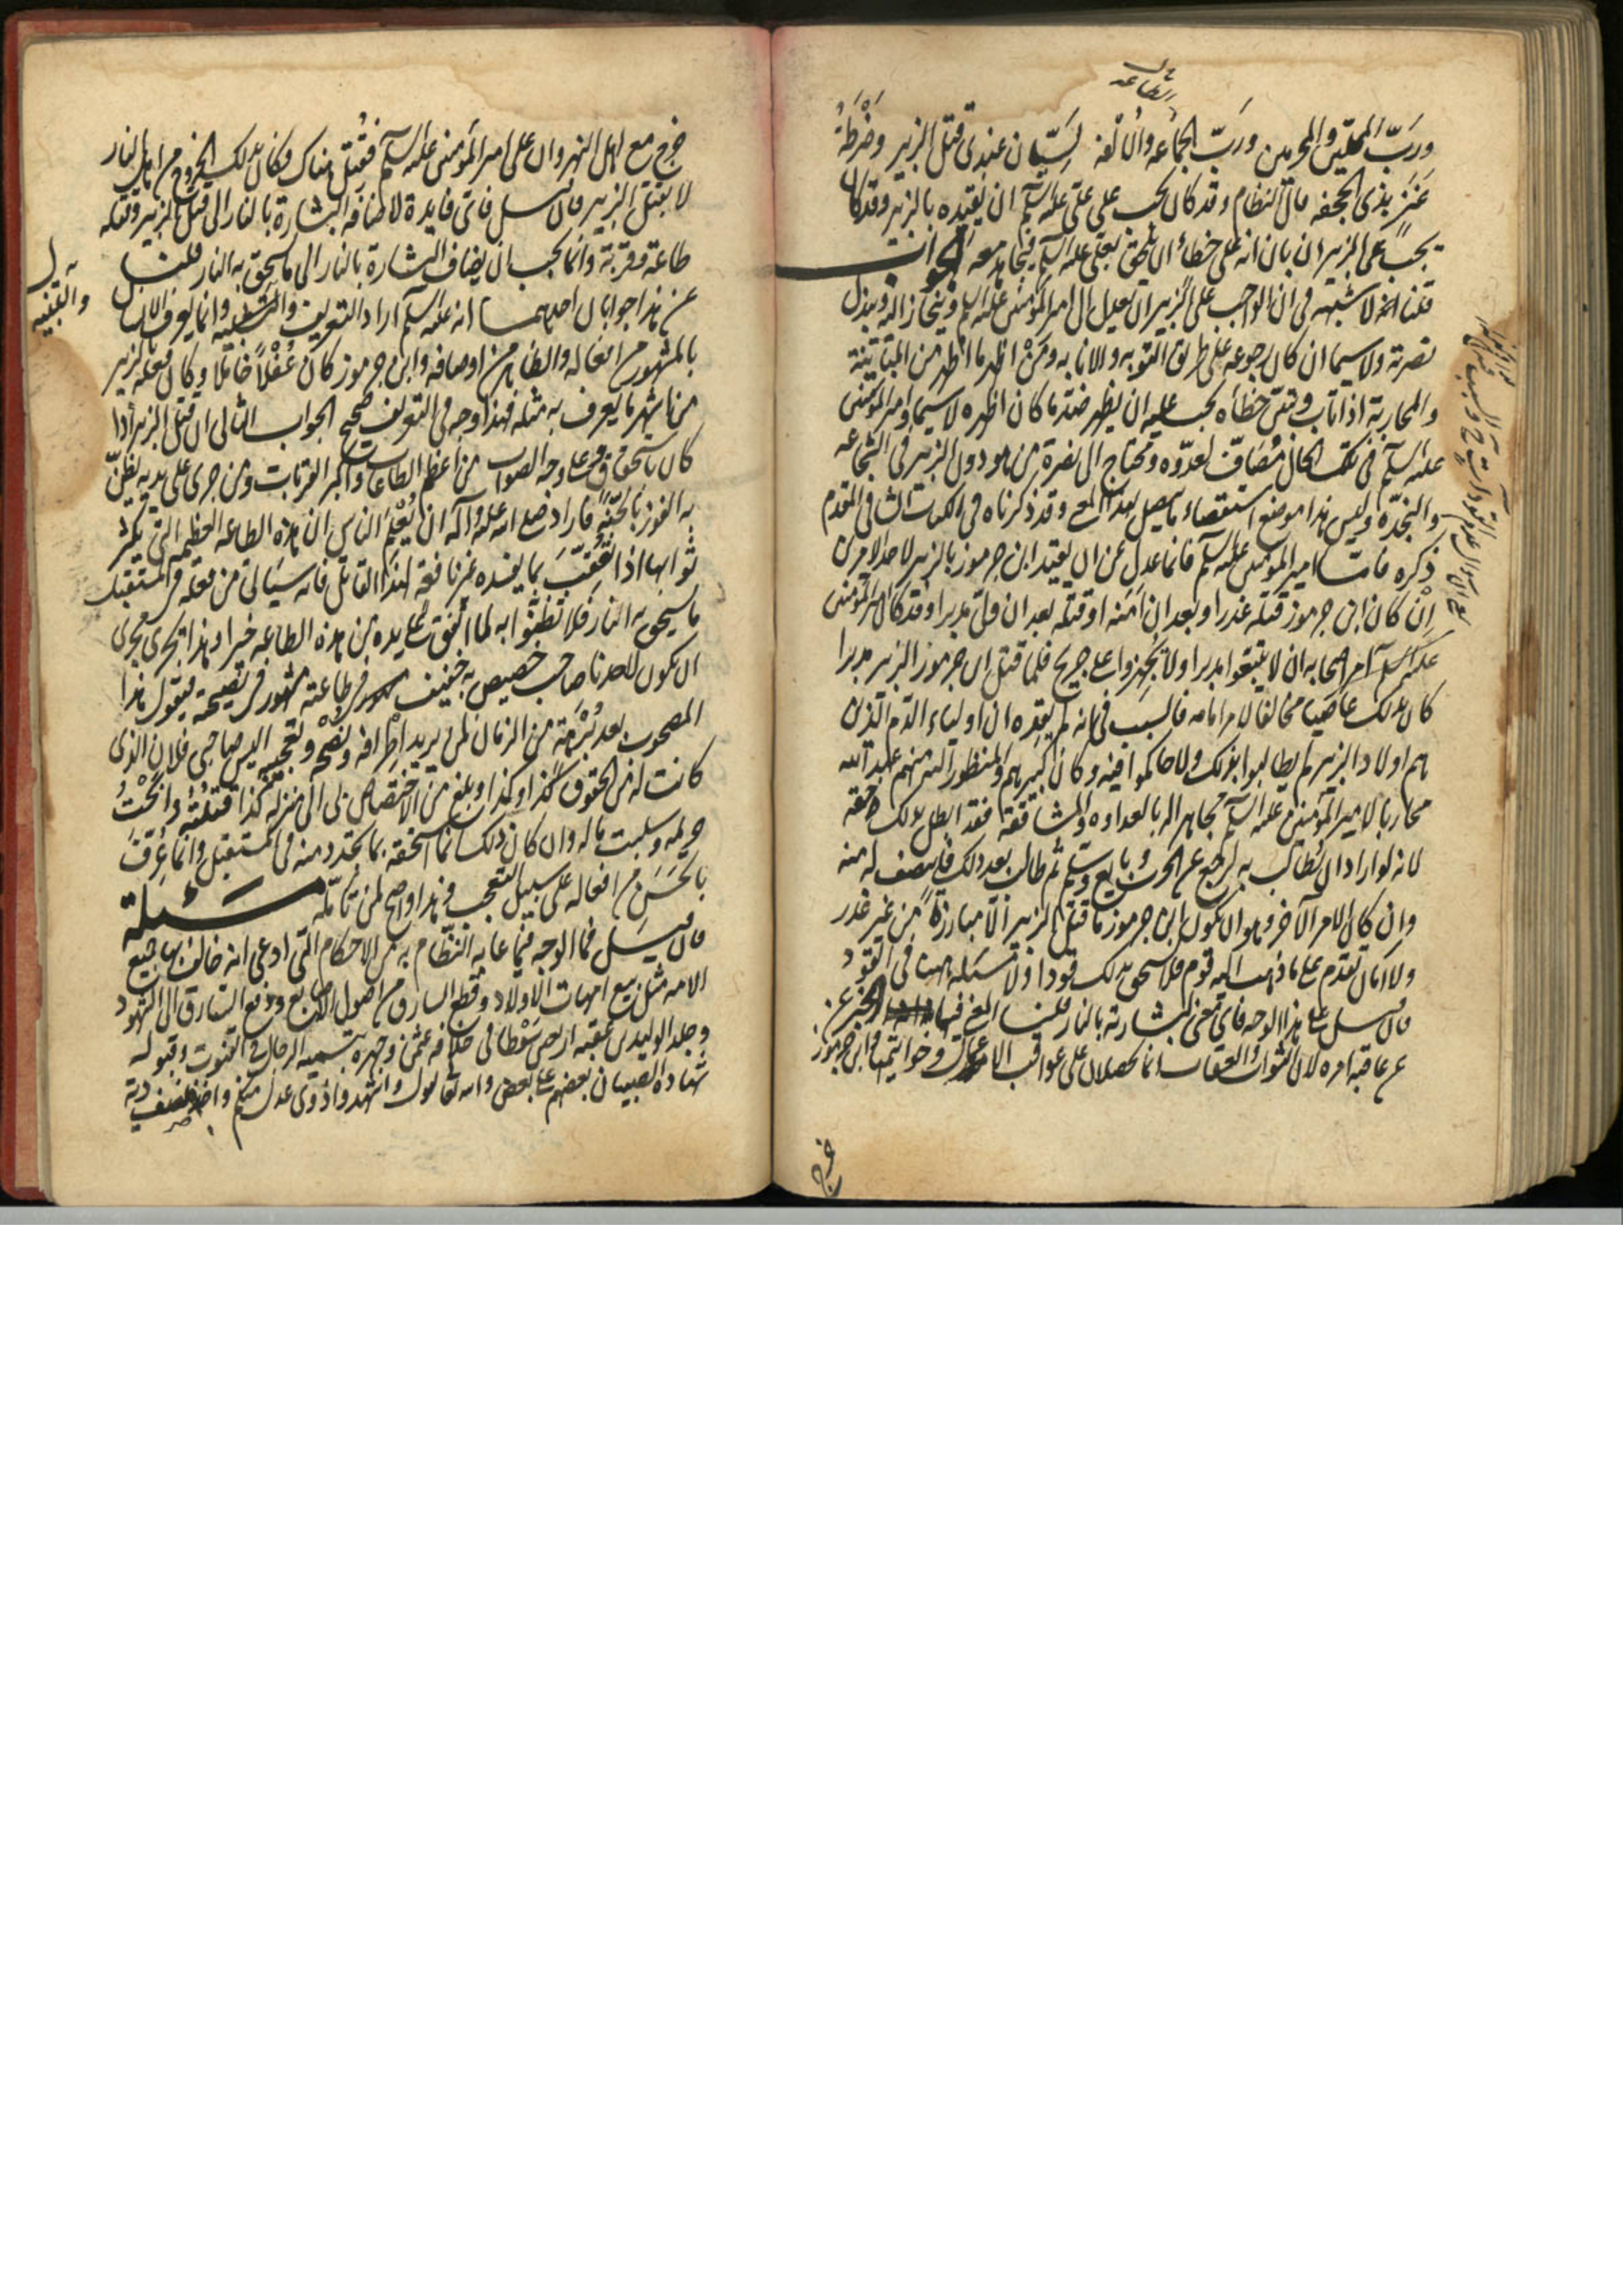 الطاعة
ورَبّ المحلّين والمحرمين ورَبّ الجماعة والالفة لَسِيّان عندى قتل الزبير وضَرْطَةُ
عَنْز بذى الجحفه قال النظام وقد كان يجب على على عليه السلم ان يقيده بالزبير وقد كان
يجب على الزبير ان بان انه على خطاء ان يلحق بعلى عليه السلم فيجاهد معه الجواب
قلنا انه لا شبهة فى ان الواجب على الزبير ان يعدل الى امير المؤمنين عليه السلم وينحاز اليه ويبذل
نصرته ولا سيما ان كان رجوعه على طريق التوبه والانابه ومن اظهر ما اظهر من المباينة
والمحاربة اذا تاب وتبيّن خطأه يجب عليه ان يظهر ضد ما كان اظهره لا سيما وامير المؤمنين
عليه السلم فى تلك الحال مُصَافّ لعدوّه ومحتاج الى نصرة من هو دون الزبير فى الشجاعه
والنجدة وليس هذا موضع استقصاء ما يتصل بهذا المعنى وقد ذكرناه فى الكتاب الشافى المقدم
ذكره فاما امير المؤمنين عليه السلم فانما عدل عن ان يقيد ابن جرموز بالزبير لاحد الامرين
اِنْ كان ابن جرموز قتله غدرا وبعد ان امّنه او قتله بعد ان ولّى مدبرا وقد كان امير المؤمنين
عليه السلم امر اصحابه ان لا يتبعوا مدبرا ولا يُجْهِزوا على جريح فلما قتل ابن جرموز الزبير مدبرا
كان بذلك عاصيا مخالفا لامر امامه فالسبب فى انه لم يقده ان اولياء الدّم الذين
هم اولاد الزبير لم يطالبوا بذلك ولا حاكموا فيه وكان كبيرهم والمنظور اليه منهم عبد الله
محاربا لامير المؤمنين عليه السلم مجاهرا له بالعداوه والمشاققة فقد ابطل بذلك حقه
لانه لو اراد ان يطالب به لرجع عن الحرب وبايع وسلّم ثم طالب بعد ذلك فانتصف له منه
وان كان الامر الآخر وهو ان يكون ابن جرموز ما قتل الزبير الّا مبارزةً من غير غدر
ولا امان تقدم على ما ذهب اليه قوم فلا يستحق بذلك قودا ولا مسئلة ههنا فى القَود
فان قيل على هذا الوجه فاى معنى لبشارته بالنار قلنا المعنى فيها الخبر عن
عن عاقبة امره لان الثواب والعقاب انما يحصلان على عواقب الاعمال وخواتيمها وابن جرموز
خرج
خرج مع اهل النهروان على امير المؤمنين عليه السلم فقُتِلَ هناك وكان بذلك الخروج من اهل النار
لا بقتل الزبير فان قيل فاى فايدة لاضافة البشارة بالنار الى قتل الزبير وقتله
طاعة وقربة وانما يجب ان يضاف البشارة بالنار الى ما يستحق به النار قلنا
عن هذا جوابان احدهما انه عليه السلم اراد التعريف والتنبيه وانما يعرف الانسان
بالمشهور من افعاله والظاهر من اوصافه وابن جرموز كان غُفْلاً خاملا وكان فعله بالزبير
من اشهر ما يعرف به مثله فهذا وجه فى التعريف صحيح الجواب الثانى ان قتل الزبير اذا
كان باستحقاق وعلى وجه الصواب من اعظم الطاعات واكبر القربات ومن جرى على يديه يظنّ
به الفوز بالجنّة فاراد صلى الله عليه وآله ان يُعْلِمَ الناس ان هذه الطاعه العظيمه التى يكثر
ثوابها اذا تُعُقِّبَت بما يفسده غير نافعة لهذا القاتل فانه سيأتى من فعله فى المستقبل
ما يستحق به النار فلا تظنّوا به لما اتفق على يده من هذه الطاعه خيرا وهذا يجرى مجرى
ان يكون لاحدنا صاحب خصيص به خفيف فى طاعته مشهور فى نصيحته فيقول هذا
المصحوب بعد بُرْهَة من الزمان لمن يريد اطرافه ونصحه وتعجّبه اليس صاحبى فلان الذى
كانت له من الحقوق كذا وكذا وبلغ من الاختصاص بى الى منزلة كذا قتلتُه وابحْتُ
حريمه وسلبت ماله وان كان ذلك انما استحقه بما تجدد منه فى المستقبل وانما عرّف
بالحَسَن من افعاله على سبيل التعجب وهذا واضح لمن تأمّله مَسْئَلة
فان قيل فما الوجه فيما عابه النظّام به من الاحكام التى ادعى انه خالف بها جميع
الامه مثل بيع امهات الاولاد وقطع السارق من اصول الاصابع ودفع السارق الى الشهود
وجلد الوليد بن عقبه اربعين سَوْطا فى خلافه عثمن وجهره بتسميه الرجال فى القنوت وقبوله
شهادة الصبيان بعضهم على بعض والله تعالى يقول واشهدوا ذوى عدل منكم واخذه نصف دية